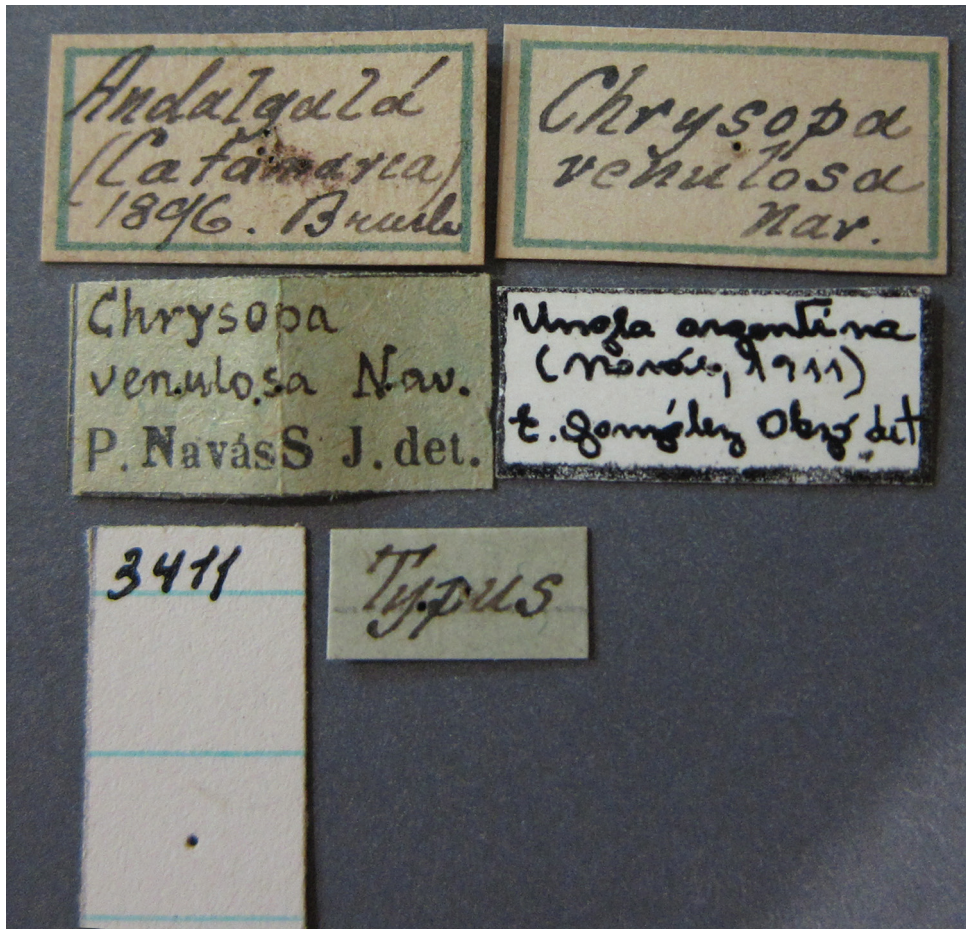 Andalgalá
(Catamarca)
1896. Bruch
Chrysopa
venulosa
Nav.
Chrysopa
venulosa Nav.
P. Navás S J. det.
Ungla argentina
(Navás, 1911)
E. González Olazo det
3411
Typus